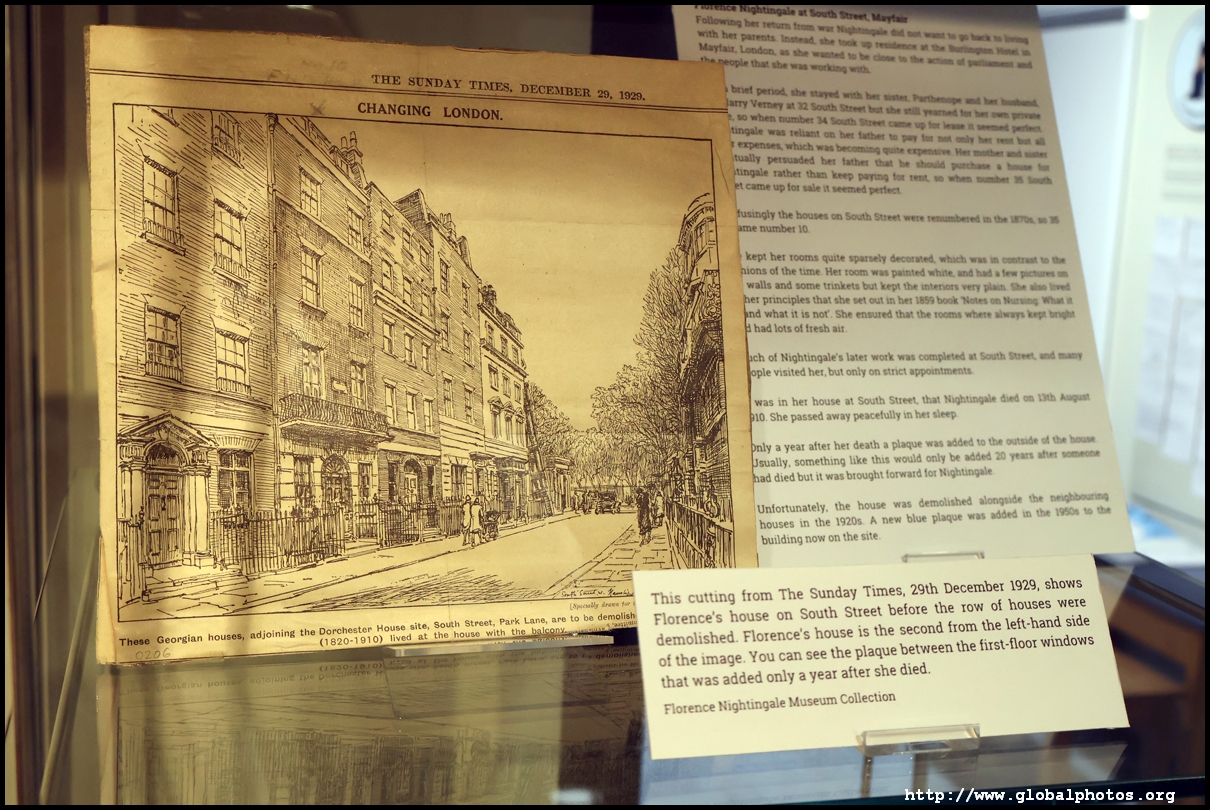 THE SUNDAY TIMES, DECEMBER 29, 1929.
CHANGING LONDON.
[Specially drawn for
These Georgian houses, adjoining the Dorchester House site, South Street, Park Lane, are to be demolish
(1820-1910) lived at the house with the balcony.
0206
Florence Nightingale at South Street, Mayfair
Following her return from war Nightingale did not want to go back to living
with her parents. Instead, she took up residence at the Burlington Hotel in
Mayfair, London, as she wanted to be close to the action of parliament and
the people that she was working with.
brief period, she stayed with her sister, Parthenope and her husband,
arry Verney at 32 South Street but she still yearned for her own private
e, so when number 34 South Street came up for lease it seemed perfect.
tingale was reliant on her father to pay for not only her rent but all
r expenses, which was becoming quite expensive. Her mother and sister
tually persuaded her father that he should purchase a house for
tingale rather than keep paying for rent, so when number 35 South
et came up for sale it seemed perfect.
fusingly the houses on South Street were renumbered in the 1870s, so 35
ame number 10.
kept her rooms quite sparsely decorated, which was in contrast to the
hions of the time. Her room was painted white, and had a few pictures on
walls and some trinkets but kept the interiors very plain. She also lived
her principles that she set out in her 1859 book 'Notes on Nursing: What it
and what it is not'. She ensured that the rooms where always kept bright
d had lots of fresh air.
uch of Nightingale's later work was completed at South Street, and many
ople visited her, but only on strict appointments.
was in her house at South Street, that Nightingale died on 13th August
910. She passed away peacefully in her sleep.
Only a year after her death a plaque was added to the outside of the house.
Usually, something like this would only be added 20 years after someone
had died but it was brought forward for Nightingale.
Unfortunately, the house was demolished alongside the neighbouring
houses in the 1920s. A new blue plaque was added in the 1950s to the
building now on the site.
This cutting from The Sunday Times, 29th December 1929, shows
Florence's house on South Street before the row of houses were
demolished. Florence's house is the second from the left-hand side
of the image. You can see the plaque between the first-floor windows
that was added only a year after she died.
Florence Nightingale Museum Collection
http://www.globalphotos.org